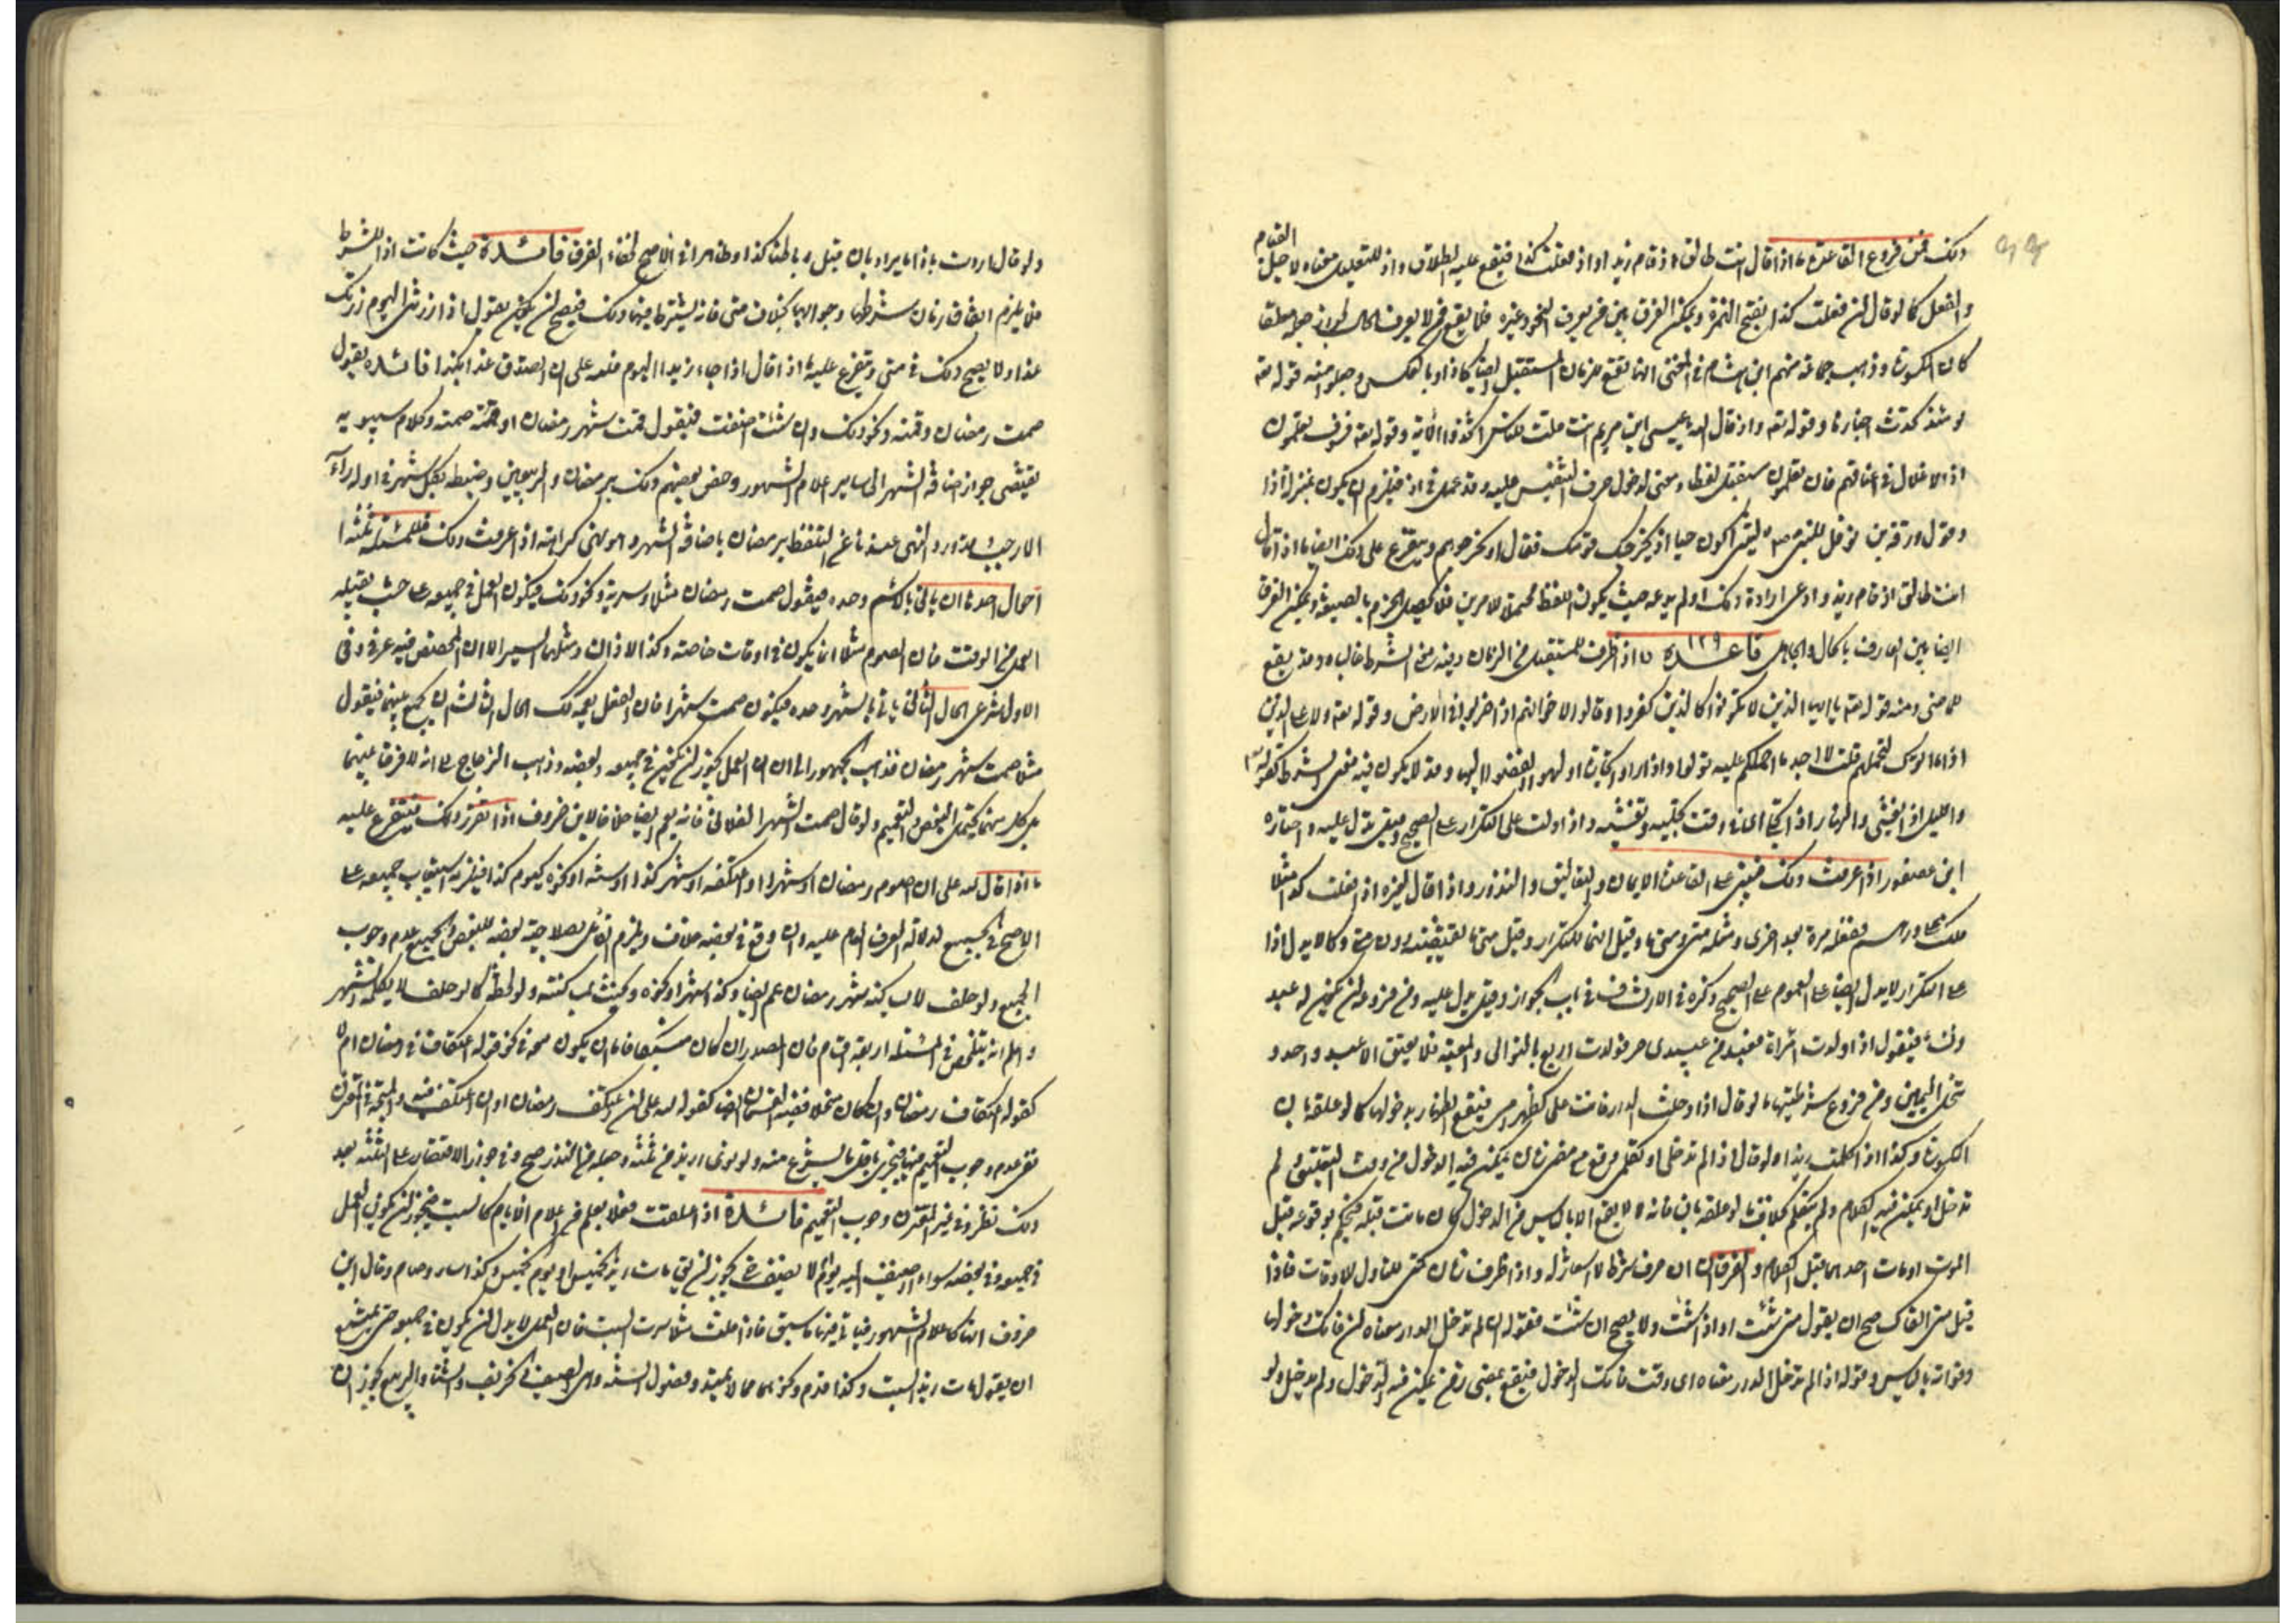 ذلك فمن فروع القاعدة ما اذا قال انت طالق اذ قام زيد او اذ فعلت كذا فيقع عليه الطلاق واذ للتعليل معناه لاجل القيام
والفعل كما لو قال لان فعلت كذا بفتح الهمزة ويمكن الفرق بين من يعرف النحو وغيره فلا يقع ممن لا يعرف الحال
كان المكسورة وذهب جماعة منهم ابن هشام في المغني انها تقع للزمان المستقبل ايضا كاذا وبالعكس وجعلوا منه قوله تعه
يومئذ تحدث اخبارها وقوله تعه واذ قال الله يا عيسى ابن مريم انت قلت للناس اتخذوا الآية وقوله تعه فسوف يعلمون
اذ الاغلال في اعناقهم فان يعلمون مستقبل لفظا ومعنى لدخول حرف التنفيس عليه وقد عمل في اذ فيلزم ان يكون بمنزلة اذا
وقول ورقة بن نوفل للنبي ص ليتني اكون حيا اذ يخرجك قومك فقال او مخرجي هم ويتفرع على ذلك ايضا ما اذا قال
انت طالق اذ قام زيد وادعى ارادة ذلك او لم يدعه حيث يكون اللفظ محتملا للامرين فلا يحصل الجزم بالصيغة ويمكن الفرق
ايضا بين العارف بالحال والجاهل قاعدة ١٢٩ اذا ظرف للمستقبل من الزمان وفيه معنى الشرط غالبا وقد يقع
للماضي ومنه قوله تعه يا ايها الذين لا تكونوا كالذين كفروا وقالوا لاخوانهم اذا ضربوا في الارض وقوله تعه ولا على الذين
اذا ما اتوك لتحملهم قلت لا اجد ما احملكم عليه تولوا واذا راوا تجارة او لهوا انفضوا اليها وقد لا يكون فيه معنى الشرط كقوله تعه
والليل اذا يغشى والنهار اذا تجلى اي في وقت تجليه وغشيه واذا دلت على التكرار على الصحيح وقيل تدل عليه واختاره
ابن عصفور اذا عرفت ذلك فيبنى على القاعدة الايمان والتعاليق والنذور واذا قال لغيره اذا فعلت كذا مثلا
فلك درهم ففعله مرة بعد اخرى ومثله متى ومتى ما وقيل انها للتكرار وقيل متى ما تقتضيه دون متى وكما لا يدل اذا
على التكرار لا يدل ايضا على العموم على الصحيح ذكره في الارتشاف في باب الجوازم وقيل يدل عليه ومن فروعه ان يكون له عبيد
ونساء فيقول اذا ولدت امرأة فعبد من عبيدي حر فولدت اربع بالتوالي والمعية فلا يعتق الا عبد واحد و
تنحل اليمين ومن فروع شرطيتها ما لو قال اذا دخلت الدار فانت علي كظهر امي فيقع الظهار بدخولها كما لو علقه بان
المكسورة وكذا اذا كلمت زيدا ولو قال اذا لم تدخلي او تكلمي وقع مع مضي زمان يمكن فيه الدخول من وقت التعليق ولم
تدخل او يمكن فيه الكلام ولم تتكلم بخلاف ما لو علقه بان فانه لا يقع الا بالياس من الدخول كان ماتت قبله فيحكم بوقوعه قبل
الموت او مات احدهما قبل الكلام والفرق ان ان حرف شرط لا اشعار له واذا ظرف زمان كمتى للتناول للاوقات فاذا
قيل متى القاك صح ان يقول متى شئت او اذا شئت ولا يصح ان شئت فقوله ان لم تدخل الدار معناه ان فاتك دخولها
وفواته بالياس وقوله اذا لم تدخل الدار معناه اي وقت فاتك الدخول فيقع بمضي زمن يمكن فيه الدخول ولم يدخل ولو
ولو قال اردت باذا ما يراد بان قبل باطنا كذا وظاهرا في الاصح لخفاء الفرق فائدة حيث كانت اذا للشرط
فلا يلزم اتفاق زمان شرطها وجوابها بخلاف متى فانه يشترط فيها ذلك فيصح ان يقول اذا زرتني اليوم زرتك
غدا ولا يصح ذلك في متى ويتفرع عليه ما اذا قال اذا جاء زيد اليوم فلله علي ان اتصدق غدا بكذا فائدة يقول
صمت رمضان وقمته ونحو ذلك وان شئت اضفت فيقول قمت شهر رمضان او صمته وكلام سيبويه
يقتضي جواز اضافة الشهر الى ساير اعلام الشهور وخص بعضهم ذلك برمضان والربيعين وضبطه بكل شهر في اوله راء
الا رجب لورود النهي عندنا عن التلفظ برمضان باضافة الشهر وهو نهي كراهة اذا عرفت ذلك فللمسئلة ثلثة
احوال احدها ان ياتي بالاسم وحده فيقول صمت رمضان مثلا وسرته ونحو ذلك فيكون العمل في جميعه على حسب ما يقبله
العمل من الوقت فان الصوم مثلا انما يكون في اوقات خاصة وكذا الاذان ومثلهما السير الا ان المخصص فيه عرفي وفي
الاول شرعي الحال الثاني ان ياتي بالشهر وحده فيكون صمت شهرا فان الفعل يعمه كذلك الحال الثالث ان يجمع بينهما فيقول
مثلا صمت شهر رمضان فذهب الجمهور الى ان العمل يجوز ان يكون في جميعه وبعضه وذهب الزجاج الى انه لا فرق بينهما
بل كل منهما يحتمل التبعيض والتعميم ولو قال صمت الشهر الفلاني فانه يعم ايضا خلافا لابن خروف اذا تقرر ذلك فيتفرع عليه
ما اذا قال لله علي ان اصوم رمضان او شهرا او اعتكفه او شهر كذا او سنة او نحوه كيوم كذا فيلزمه استيعاب جميعه على
الاصح في الجميع لدلالة العرف العام عليه وان وقع في بعضه خلاف ويلزم القائل بصلاحية بعضه للبعض والجميع عدم وجوب
الجميع ولو حلف لا يساكنه شهر رمضان عم ايضا وكذا شهرا ونحوه ويحنث بمساكنته ولو لحظة كما لو حلف لا يكلمه الشهر
واعلم انه يتلخص في المسئلة اربعة اقسام فان المصدر ان كان مستغرقا فاما ان يكون معه في نحو قوله اعتكاف في رمضان ام لا
كقوله اعتكاف رمضان وان كان منحلا ففيه القسمان ايضا كقوله لله علي ان اعتكف رمضان او ان اعتكف فيه والمتجه في المقرون
بفي عدم وجوب التعميم فيجزي باقل ما يشرع منه ولو نوى ازيد من ثلثة وجعله من النذر صح وفي جواز الاقتصار على الثلثة بعد
ذلك نظر وفي غير المقرون وجوب التعميم فائدة اذا علقت فعلا بعلم من اعلام الايام كالسبت فيجوز ان يكون العمل
في جميعه وفي بعضه سواء اضيف اليه يوم ام لا يضف فيجوز ان يقول مات زيد الخميس او يوم الخميس وكذا سار وصام وقال ابن
خروف انها كاعلام الشهور فياتي فيها ما سبق فاذا قلت مثلا سرت السبت فان العمل لا بد ان يكون في جميعه حتى يمتنع
ان يقول مات زيد السبت وكذا قدم ونحوهما مما لا يمتد وفصول السنة وهي الصيف والخريف والشتاء والربيع يجوز ان